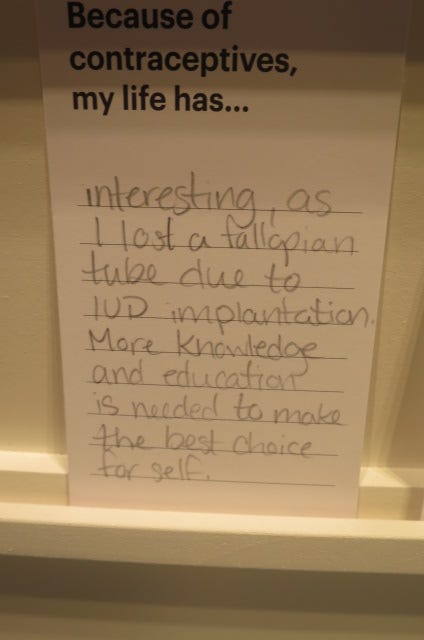 Because of
contraceptives,
my life has...
interesting, as
I lost a fallopian
tube due to
IUD implantation.
More knowledge
and education
is needed to make
the best choice
for self.